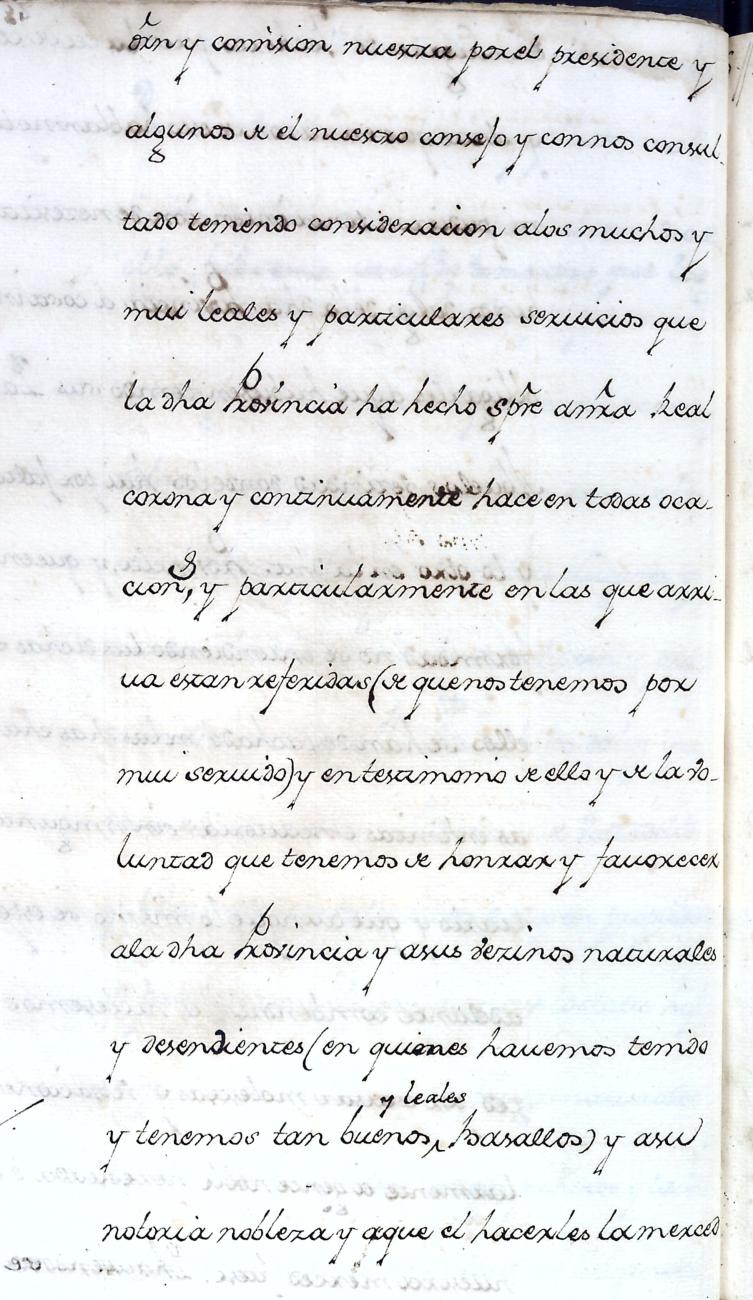 orn y comision nuestra por el presidente y
algunos de el nuestro consejo y con nos consul-
tado teniendo consideracion a los muchos y
mui leales y particulares seruicios que
la dha Provincia ha hecho spre a nra Real
corona y continuamente hace en todas oca-
cions, y particularmente en las que arri-
ua estan referidas (de que nos tenemos por
mui seruido) y en testimonio de ello y de la vo-
luntad que tenemos de honrar y fauorecer
a la dha Provincia y a sus vezinos naturales
y desendientes (en quienes hauemos tenido
y leales
y tenemos tan buenos Basallos) y a su
notoria nobleza y a que el hacerles la merced